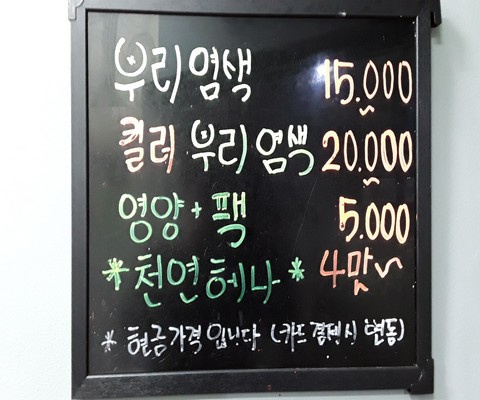 뿌리염색 15.000~
컬러 뿌리염색 20.000~
영양+팩 5.000
*천연헤나* 4만~
* 현금가격입니다 (카드결제시 변동)